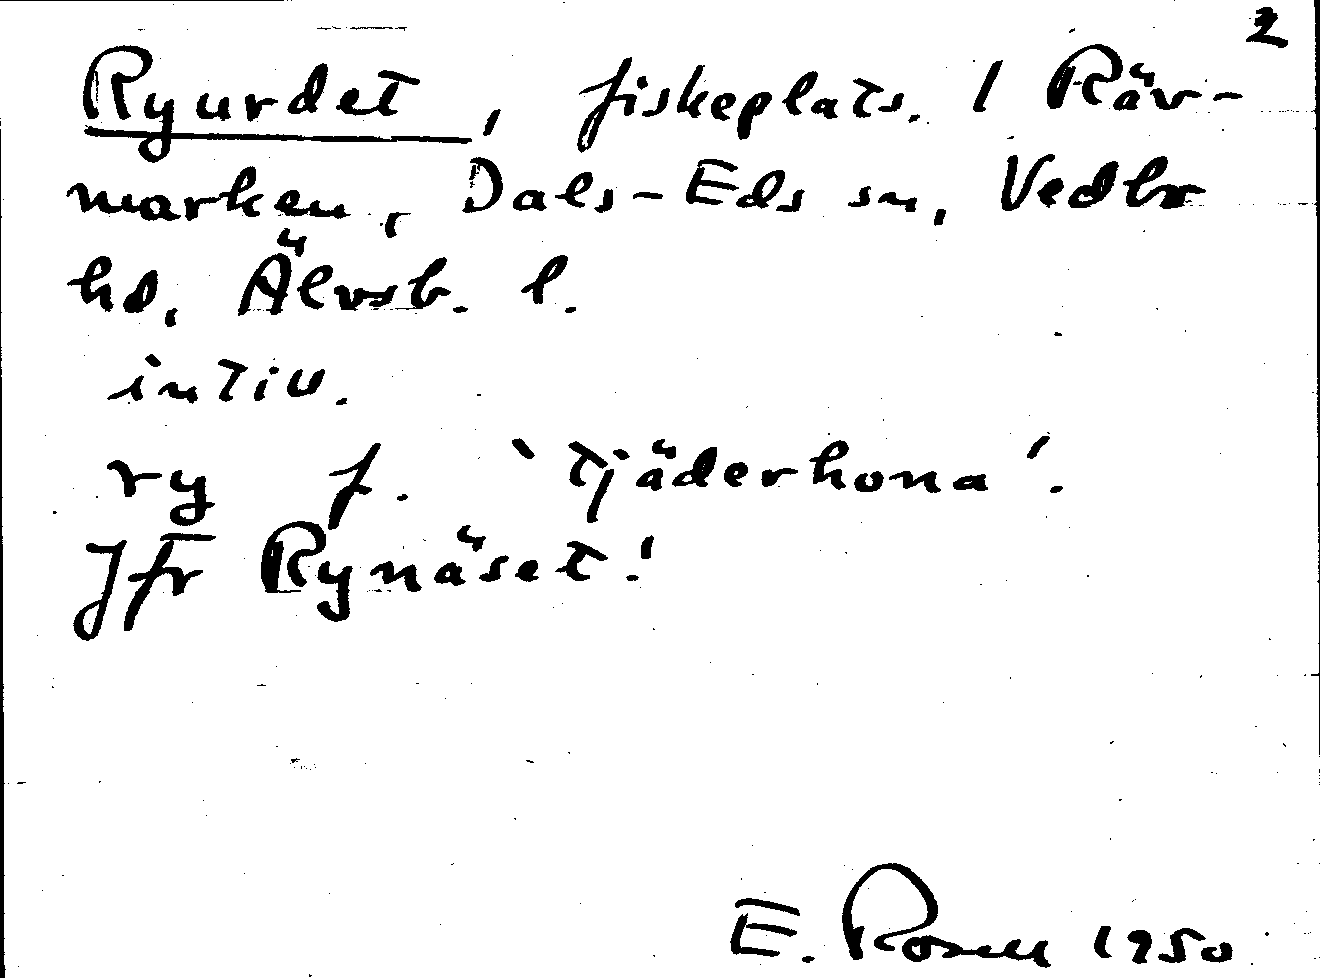 2
Ryurdet, fiskeplats. I Räv-
marken, Dals-Eds sn, Vedbo
hd, Älvsb. l.
intiv.
ry f. ‵tjäderhona′.
Jfr Rynäset!
E. Rosell 1950